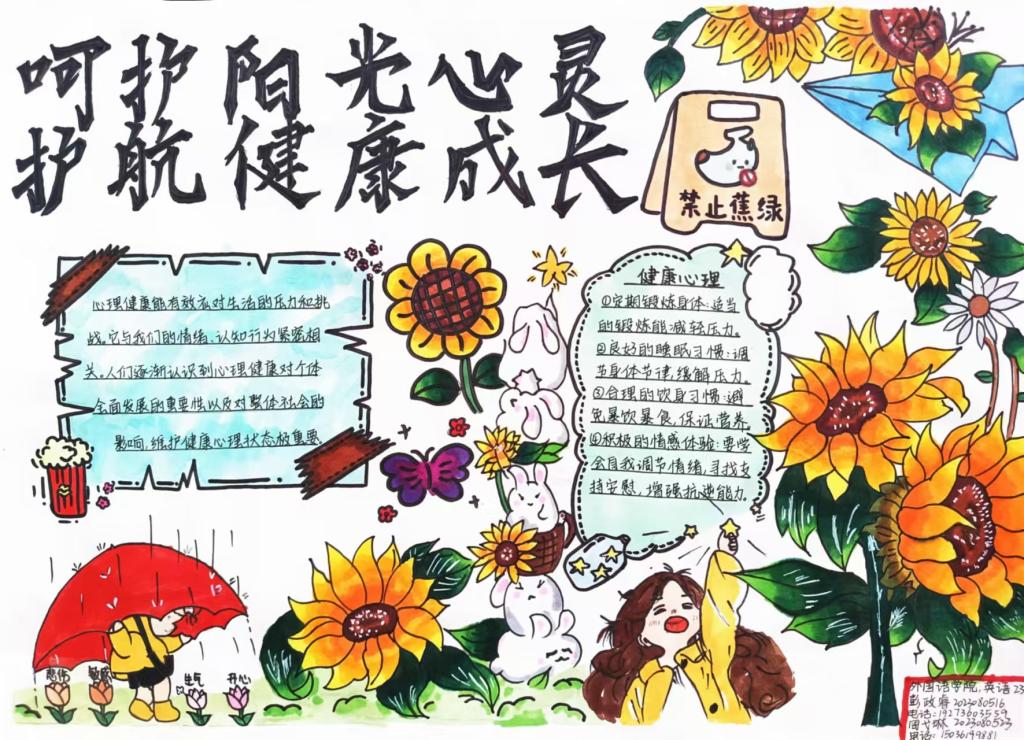 呵护阳光心灵
护航健康成长
禁止蕉绿
心理健康能有效应对生活的压力和挑
战。它与我们的情绪、认知行为紧密相
关。人们逐渐认识到心理健康对个体
全面发展的重要性以及对整体社会的
影响,维护健康心理状态极重要
健康心理
①定期锻炼身体:适当
的锻炼能减轻压力。
②良好的睡眠习惯:调
节身体节律,缓解压力。
③合理的饮食习惯:避
免暴饮暴食,保证营养
④积极的情感体验:要学
会自我调节情绪,寻找支
持安慰,增强抗逆能力。
悲伤
敏感
生气
开心
外国语学院,英语23
彭政睿 2023080516
电话:19273603559
2023080523
电话:15036149881